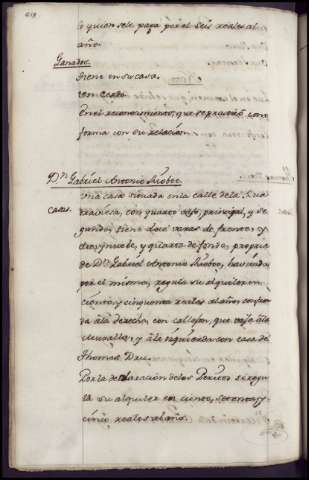 a quien se le paga por el seis reales al
año.
Ganados.
tiene en su casa.
Un Cerdo.
En el reconocimiento, que se practicó con
forma con su relación
Dn. Gabriel Antonio
Casas.
Una casa situada en la calle de la
con quarto vajo, principal, y se
gundo, tiene doce varas de frente, y
diez y nueve, y quarta de fondo, propia
de Dn. Gabriel Antonio havitada
por el mismo, regula su alquiler en
ciento, y cinquenta reales al año, confron
ta a la derecha, con callejon, que vaje a la
a la izquierda con casa de
Thomas
Por la declaración de los Peritos se regu
la su alquiler en ciento, setenta, y
cinco reales al año.